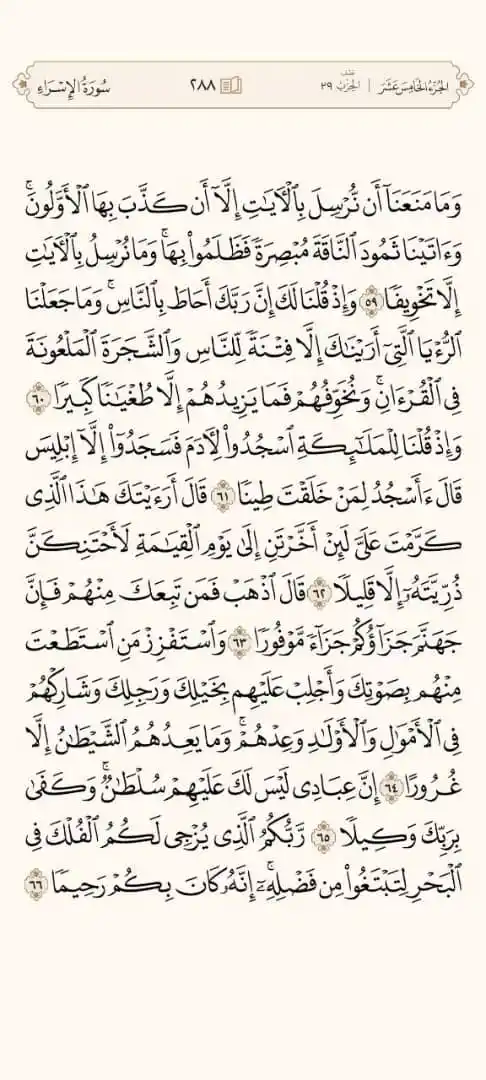 الجُزءُ الخَامِسَ عَشَرَ | نصف الحِزبُ ٢٩
٢٨٨
سُورَةُ الإِسۡرَاءِ
وَمَا مَنَعَنَآ أَن نُّرۡسِلَ بِٱلۡأٓيَٰتِ إِلَّآ أَن كَذَّبَ بِهَا ٱلۡأَوَّلُونَۚ
وَءَاتَيۡنَا ثَمُودَ ٱلنَّاقَةَ مُبۡصِرَةٗ فَظَلَمُواْ بِهَاۚ وَمَا نُرۡسِلُ بِٱلۡأٓيَٰتِ
إِلَّا تَخۡوِيفٗا ٥٩ وَإِذۡ قُلۡنَا لَكَ إِنَّ رَبَّكَ أَحَاطَ بِٱلنَّاسِۚ وَمَا جَعَلۡنَا
ٱلرُّءۡيَا ٱلَّتِيٓ أَرَيۡنَٰكَ إِلَّا فِتۡنَةٗ لِّلنَّاسِ وَٱلشَّجَرَةَ ٱلۡمَلۡعُونَةَ
فِي ٱلۡقُرۡءَانِۚ وَنُخَوِّفُهُمۡ فَمَا يَزِيدُهُمۡ إِلَّا طُغۡيَٰنٗا كَبِيرٗا ٦٠
وَإِذۡ قُلۡنَا لِلۡمَلَٰٓئِكَةِ ٱسۡجُدُواْ لِأٓدَمَ فَسَجَدُوٓاْ إِلَّآ إِبۡلِيسَ
قَالَ ءَأَسۡجُدُ لِمَنۡ خَلَقۡتَ طِينٗا ٦١ قَالَ أَرَءَيۡتَكَ هَٰذَا ٱلَّذِي
كَرَّمۡتَ عَلَيَّ لَئِنۡ أَخَّرۡتَنِ إِلَىٰ يَوۡمِ ٱلۡقِيَٰمَةِ لَأَحۡتَنِكَنَّ
ذُرِّيَّتَهُۥٓ إِلَّا قَلِيلٗا ٦٢ قَالَ ٱذۡهَبۡ فَمَن تَبِعَكَ مِنۡهُمۡ فَإِنَّ
جَهَنَّمَ جَزَآؤُكُمۡ جَزَآءٗ مَّوۡفُورٗا ٦٣ وَٱسۡتَفۡزِزۡ مَنِ ٱسۡتَطَعۡتَ
مِنۡهُم بِصَوۡتِكَ وَأَجۡلِبۡ عَلَيۡهِم بِخَيۡلِكَ وَرَجِلِكَ وَشَارِكۡهُمۡ
فِي ٱلۡأَمۡوَٰلِ وَٱلۡأَوۡلَٰدِ وَعِدۡهُمۡۚ وَمَا يَعِدُهُمُ ٱلشَّيۡطَٰنُ إِلَّا
غُرُورًا ٦٤ إِنَّ عِبَادِي لَيۡسَ لَكَ عَلَيۡهِمۡ سُلۡطَٰنٞۚ وَكَفَىٰ
بِرَبِّكَ وَكِيلٗا ٦٥ رَّبُّكُمُ ٱلَّذِي يُزۡجِي لَكُمُ ٱلۡفُلۡكَ فِي
ٱلۡبَحۡرِ لِتَبۡتَغُواْ مِن فَضۡلِهِۦٓۚ إِنَّهُۥ كَانَ بِكُمۡ رَحِيمٗا ٦٦